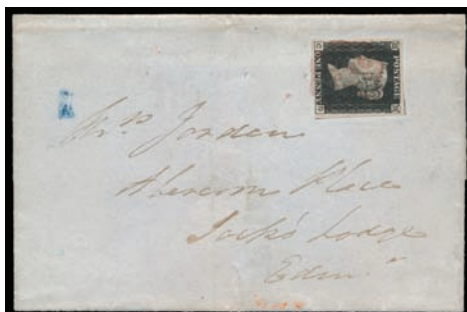 POSTAGE
ONE PENNY
Mrs Jordan
Abercorn Place
Jock's Lodge
Edinr